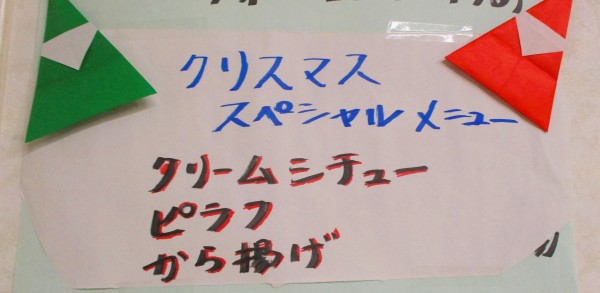 クリスマス
スペシャルメニュー
クリームシチュー
ピラフ
から揚げ